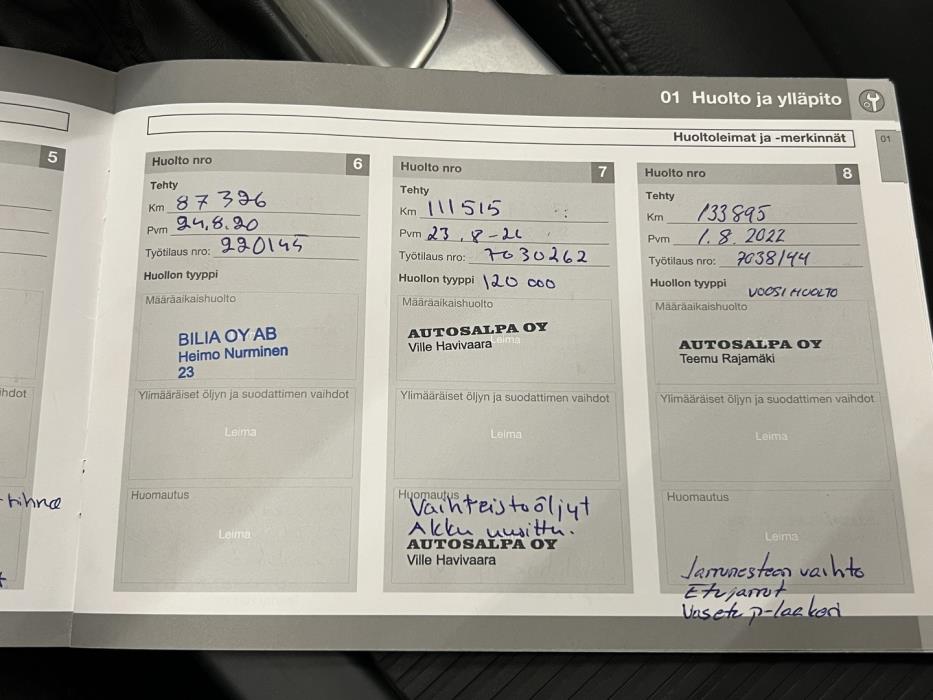 01 Huolto ja ylläpito
Huoltoleimat ja -merkinnät
01
5
ihdot
rihna
Huolto nro 6
Tehty
Km 87326
Pvm 24.8.20
Työtilaus nro: 220145
Huollon tyyppi
Määräaikaishuolto
BILIA OY AB
Heimo Nurminen
23
Ylimääräiset öljyn ja suodattimen vaihdot
Leima
Huomautus
Leima
Huolto nro 7
Tehty
Km 111515
Pvm 23.8-21
Työtilaus nro: 7030262
Huollon tyyppi 120 000
Määräaikaishuolto
AUTOSALPA OY
Leima
Ville Havivaara
Ylimääräiset öljyn ja suodattimen vaihdot
Leima
Huomautus
Vaihteistoöljyt
Akku uusittu.
AUTOSALPA OY
Ville Havivaara
Huolto nro 8
Tehty
Km 133895
Pvm 1.8.2022
Työtilaus nro: 7038144
Huollon tyyppi
VUOSIHUOLTO
Määräaikaishuolto
AUTOSALPA OY
Teemu Rajamäki
Ylimääräiset öljyn ja suodattimen vaihdot
Leima
Huomautus
Leima
Jarrunesteen vaihto
Etujarrut
p-laakeri